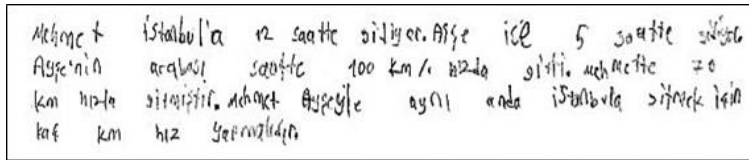 Mehmet istanbul'a 12 saatte gidiyor. Ayşe ise 5 saatte gidiyor.
Ayşe'nin arabası saatte 100 km/. hızda gitti. Mehmette 70
km hızla gitmiştir. Mehmet Ayşeyle aynı anda istanbula gitmek için
kaç km hız yapmalıdır.